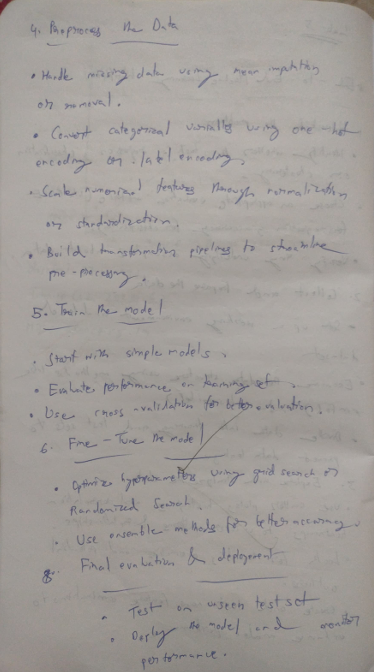 4. Preprocess the Data
• Handle missing data using mean imputation
or removal.
• Convert categorical variables using one-hot
encoding or label encoding.
• Scale numerical features through normalization
or standardization.
• Build transformation pipelines to streamline
pre-processing.
5. Train the model
• Start with simple models.
• Evaluate performance on training set.
• Use cross-validation for better evaluation.
6. Fine-Tune the model
• Optimize hyperparameters using grid search or
Randomized Search.
• Use ensemble methods for better accuracy.
8. Final evaluation & deployment
• Test on unseen test set
• Deploy the model and monitor
performance.